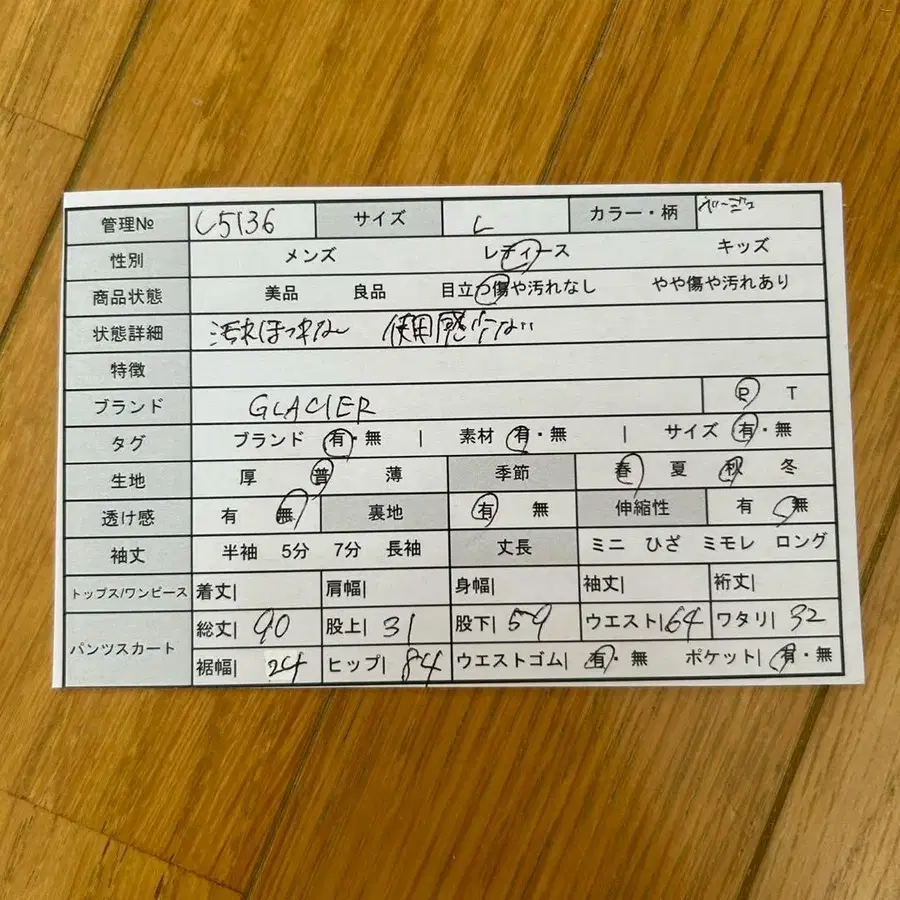 管理№ L5136 サイズ L カラー・柄 ベージュ
性別 メンズ レディース キッズ
商品状態 美品 良品 目立つ傷や汚れなし やや傷や汚れあり
状態詳細 汚れほつれなし 使用感少ない
特徴
ブランド GLACIER P T
タグ ブランド 有・無 | 素材 有・無 | サイズ 有・無
生地 厚 普 薄 季節 春 夏 秋 冬
透け感 有 無 裏地 有 無 伸縮性 有 無
袖丈 半袖 5分 7分 長袖 丈長 ミニ ひざ ミモレ ロング
トップス/ワンピース 着丈| 肩幅| 身幅| 袖丈| 裄丈|
パンツスカート 総丈| 90 股上| 31 股下| 59 ウエスト| 64 ワタリ| 32
裾幅| 24 ヒップ| 84 ウエストゴム| 有・無 ポケット| 有・無